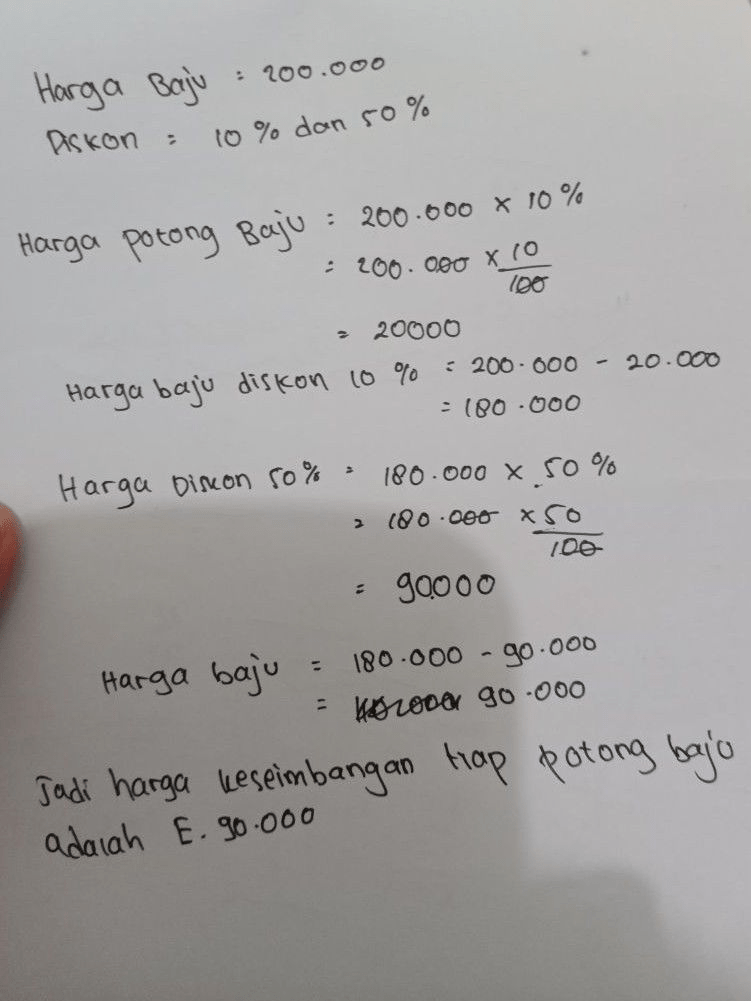 Harga Baju : 200.000
Diskon = 10 % dan 50 %
Harga potong Baju : 200.000 x 10 %
= 200.000 x 10/100
= 20000
Harga baju diskon 10 % = 200.000 - 20.000
= 180.000
Harga Diskon 50% = 180.000 x 50 %
= 180.000 x 50/100
= 90.000
Harga baju = 180.000 - 90.000
= 90.000
Jadi harga keseimbangan tiap potong baju
adalah E. 90.000